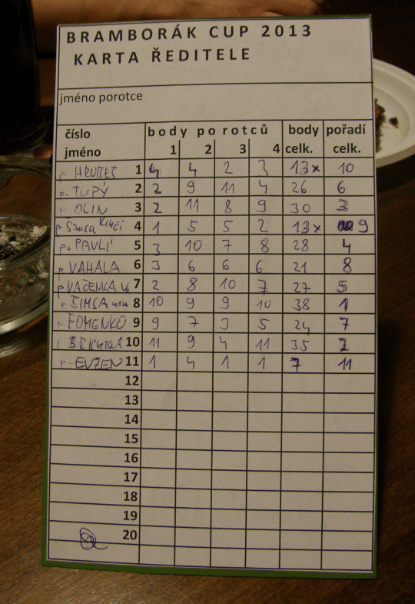 BRAMBORÁK CUP 2013
KARTA ŘEDITELE
jméno porotce
číslo body porotců body pořadí
jméno 1 2 3 4 celk. celk.
1 4 4 2 3 13x 10
p. TUPÝ 2 2 9 11 4 26 6
p. OLIN 3 2 11 8 9 30 3
p. SIMCA 4 1 5 5 2 13x 9
p. PAVLÍ 5 3 10 7 8 28 4
p. VAHALA 6 3 6 6 6 21 8
7 2 8 10 7 27 5
p. SIMCA 8 10 9 9 10 38 1
p. FOMENKO 9 9 7 3 5 24 7
10 11 9 4 11 35 2
p. EVŽEN 11 1 4 1 1 7 11
12
13
14
15
16
17
18
19
20